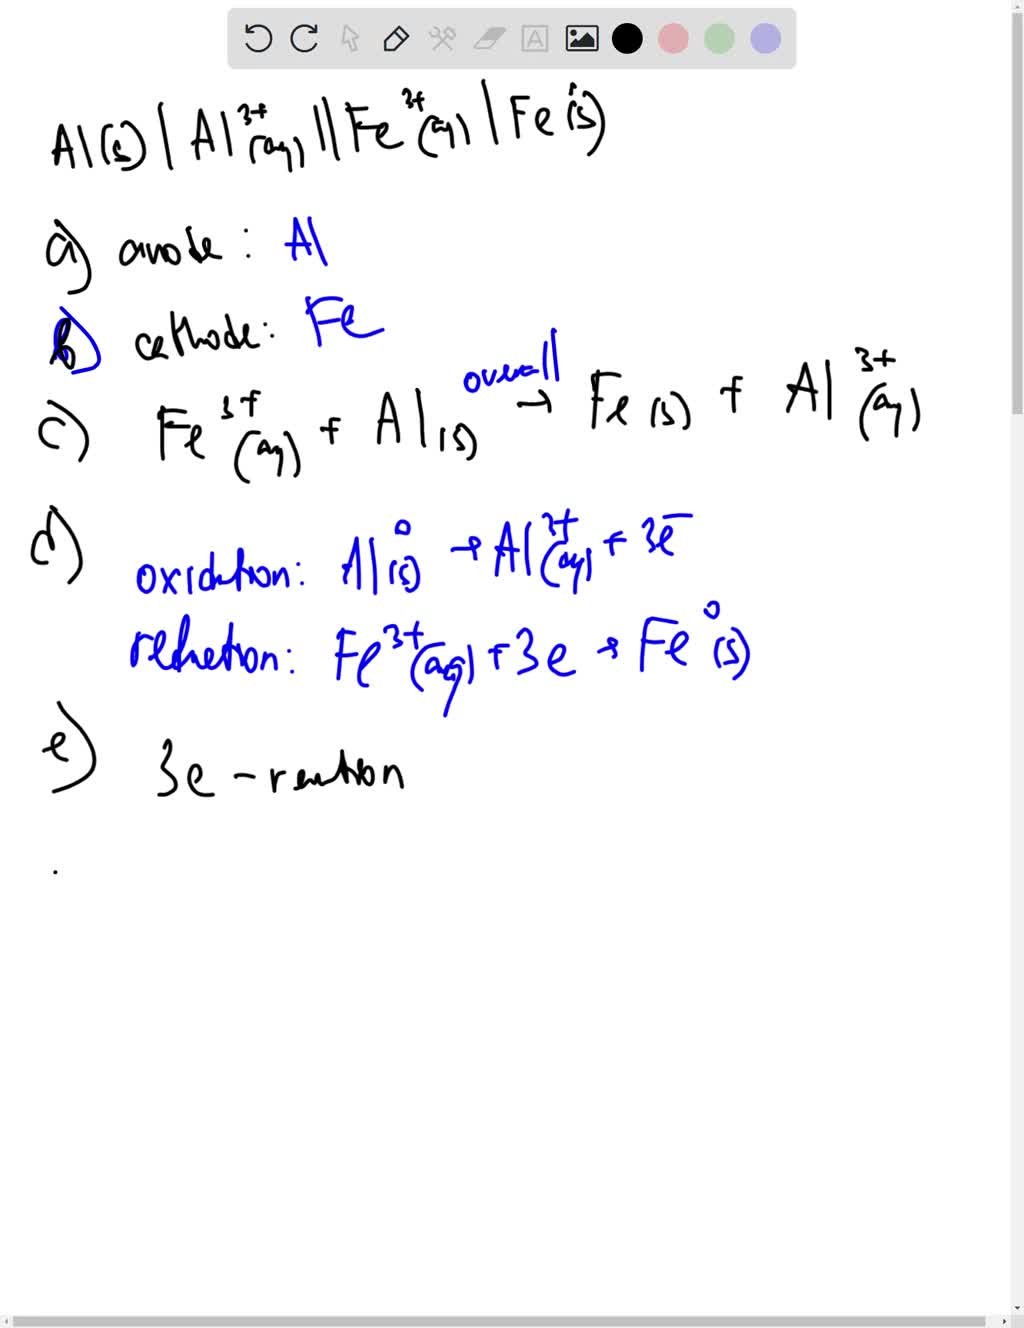 Al(s) | Al³⁺(aq) || Fe³⁺(aq) | Fe(s)
a) anode: Al
b) cathode: Fe
c) Fe³⁺(aq) + Al(s) overall → Fe(s) + Al³⁺(aq)
d)
oxidation: Al⁰(s) → Al³⁺(aq) + 3e⁻
reduction: Fe³⁺(aq) + 3e → Fe⁰(s)
e) 3e - reaction